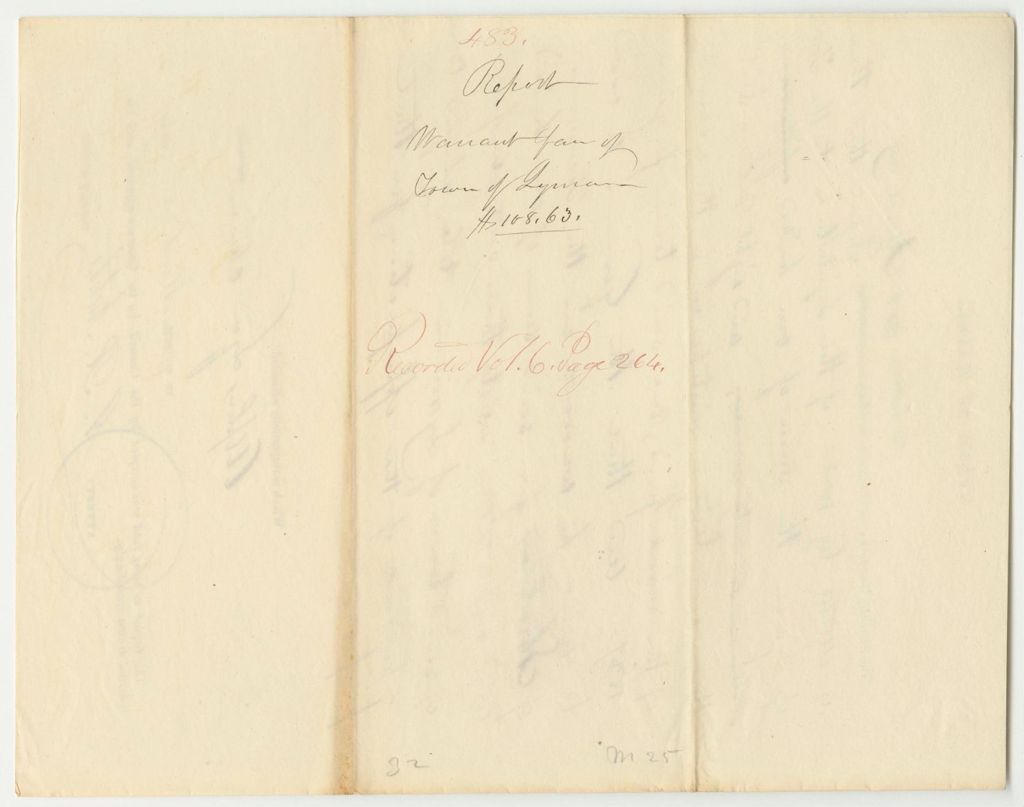 483.
Report
Warrant fav of
Town of Lyman
$108.63.
Recorded Vol. 6. Page 264.
32
M 25